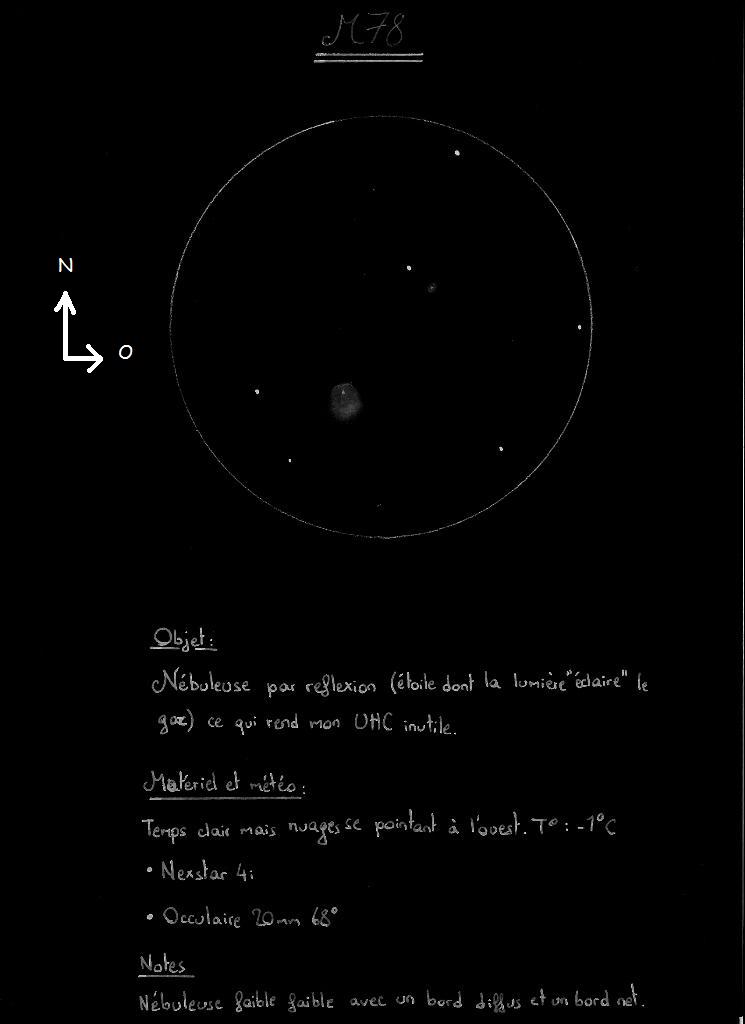 M78
N
O
Objet:
Nébuleuse par reflexion (étoile dont la lumière "éclaire" le
gaz) ce qui rend mon UHC inutile.
Matériel et météo:
Temps clair mais nuages se pointant à l'ouest. T° : -1°C
• Nexstar 4i
• Occulaire 20mm 68°
Notes
Nébuleuse faible faible avec un bord diffus et un bord net.